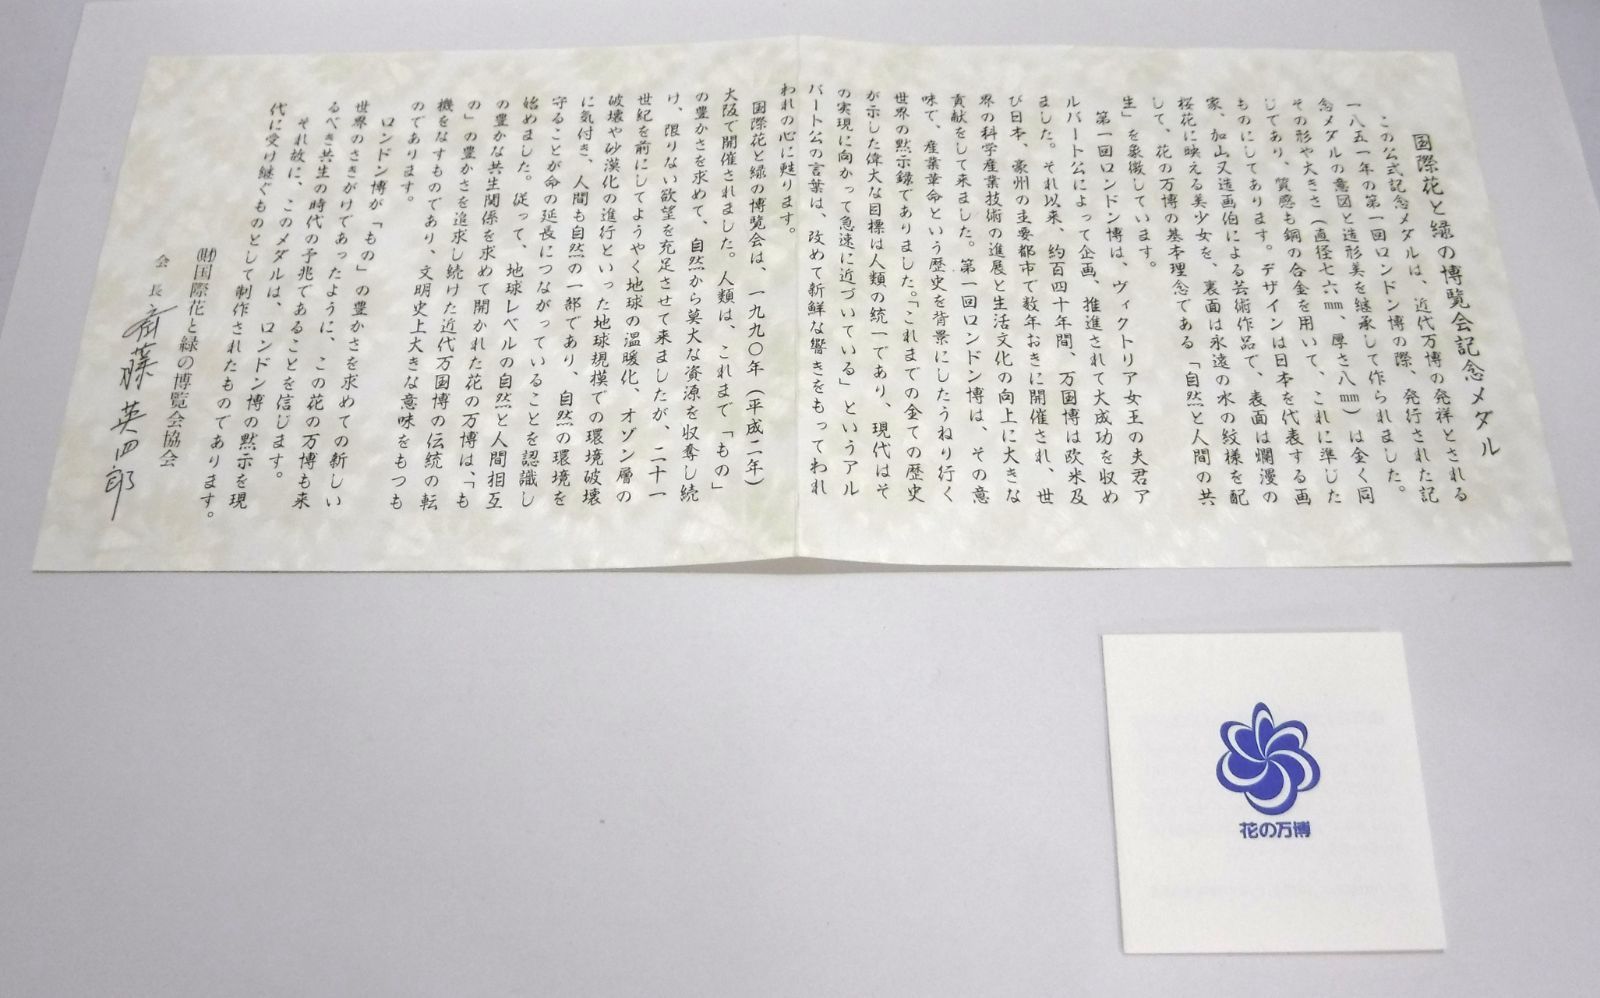 国際花と緑の博覧会記念メダル
この公式記念メダルは、近代万博の発祥とされる
一八五一年の第一回ロンドン博の際、発行された記
念メダルの意図と造形美を継承して作られました。
その形や大きさ（直径七六㎜、厚さ八㎜）は全く同
じであり、質感も銅の合金を用いて、これに準じた
ものにしてあります。デザインは日本を代表する画
家、加山又造画伯による芸術作品で、表面は爛漫の
桜花に映える美少女を、裏面は永遠の水の紋様を配
して、花の万博の基本理念である「自然と人間の共
生」を象徴しています。
第一回ロンドン博は、ヴィクトリア女王の夫君ア
ルバート公によって企画、推進されて大成功を収め
ました。それ以来、約百四十年間、万国博は欧米及
び日本、豪州の主要都市で数年おきに開催され、世
界の科学産業技術の進展と生活文化の向上に大きな
貢献をして来ました。第一回ロンドン博は、その意
味で、産業革命という歴史を背景にしたうねり行く
世界の黙示録でありました。「これまでの全ての歴史
が示した偉大な目標は人類の統一であり、現代はそ
の実現に向かって急速に近づいている」というアル
バート公の言葉は、改めて新鮮な響きをもってわれ
われの心に甦ります。
国際花と緑の博覧会は、一九九〇年（平成二年）
大阪で開催されました。人類は、これまで「もの」
の豊かさを求めて、自然から莫大な資源を収奪し続
け、限りない欲望を充足させて来ましたが、二十一
世紀を前にしてようやく地球の温暖化、オゾン層の
破壊や砂漠化の進行といった地球規模での環境破壊
に気付き、人間も自然の一部であり、自然の環境を
守ることが命の延長につながっていることを認識し
始めました。従って、地球レベルの自然と人間相互
の豊かな共生関係を求めて開かれた花の万博は、「も
の」の豊かさを追求し続けた近代万国博の伝統の転
機をなすものであり、文明史上大きな意味をもつも
のであります。
ロンドン博が「もの」の豊かさを求めての新しい
世界のさきがけであったように、この花の万博も来
るべき共生の時代の予兆であることを信じます。
それ故に、このメダルは、ロンドン博の黙示を現
代に受け継ぐものとして制作されたものであります。
㈶国際花と緑の博覧会協会
会長 斎藤英四郎
花の万博